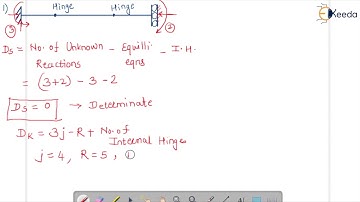 1) Hinge Hinge Keeda
3 2
Ds = No. of Unknown - Equilli. - I.H.
Reactions eqns
= (3+2) - 3 - 2
Ds = 0 → Determinate
Dk = 3j - R + No. of
Internal Hinges
j = 4, R = 5, ①